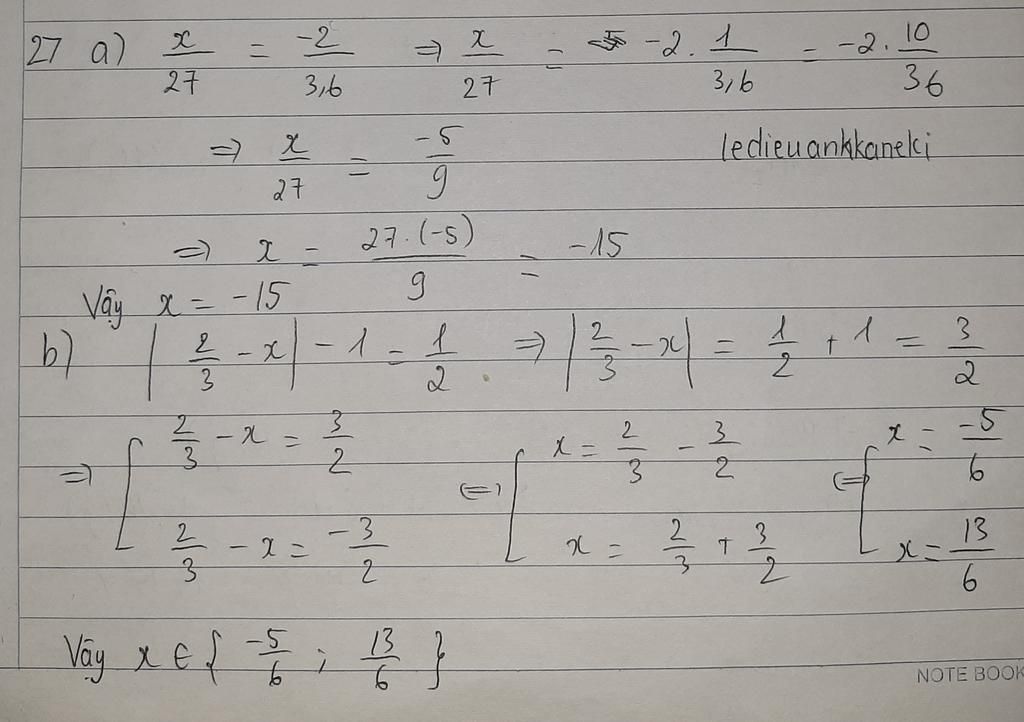 27 a) x/27 = -2/3,6 => x/27 = -2. 1/3,6 = -2. 10/36
=> x/27 = -5/9 ledieuankkaneki
=> x = 27.(-5)/9 = -15
Vậy x = -15
b) |2/3 - x| - 1 = 1/2 => |2/3 - x| = 1/2 + 1 = 3/2
=> [ 2/3 - x = 3/2 <=> [ x = 2/3 - 3/2 <=> [ x = -5/6
2/3 - x = -3/2 x = 2/3 + 3/2 x = 13/6
Vậy x ∈ { -5/6 ; 13/6 }
NOTE BOOK